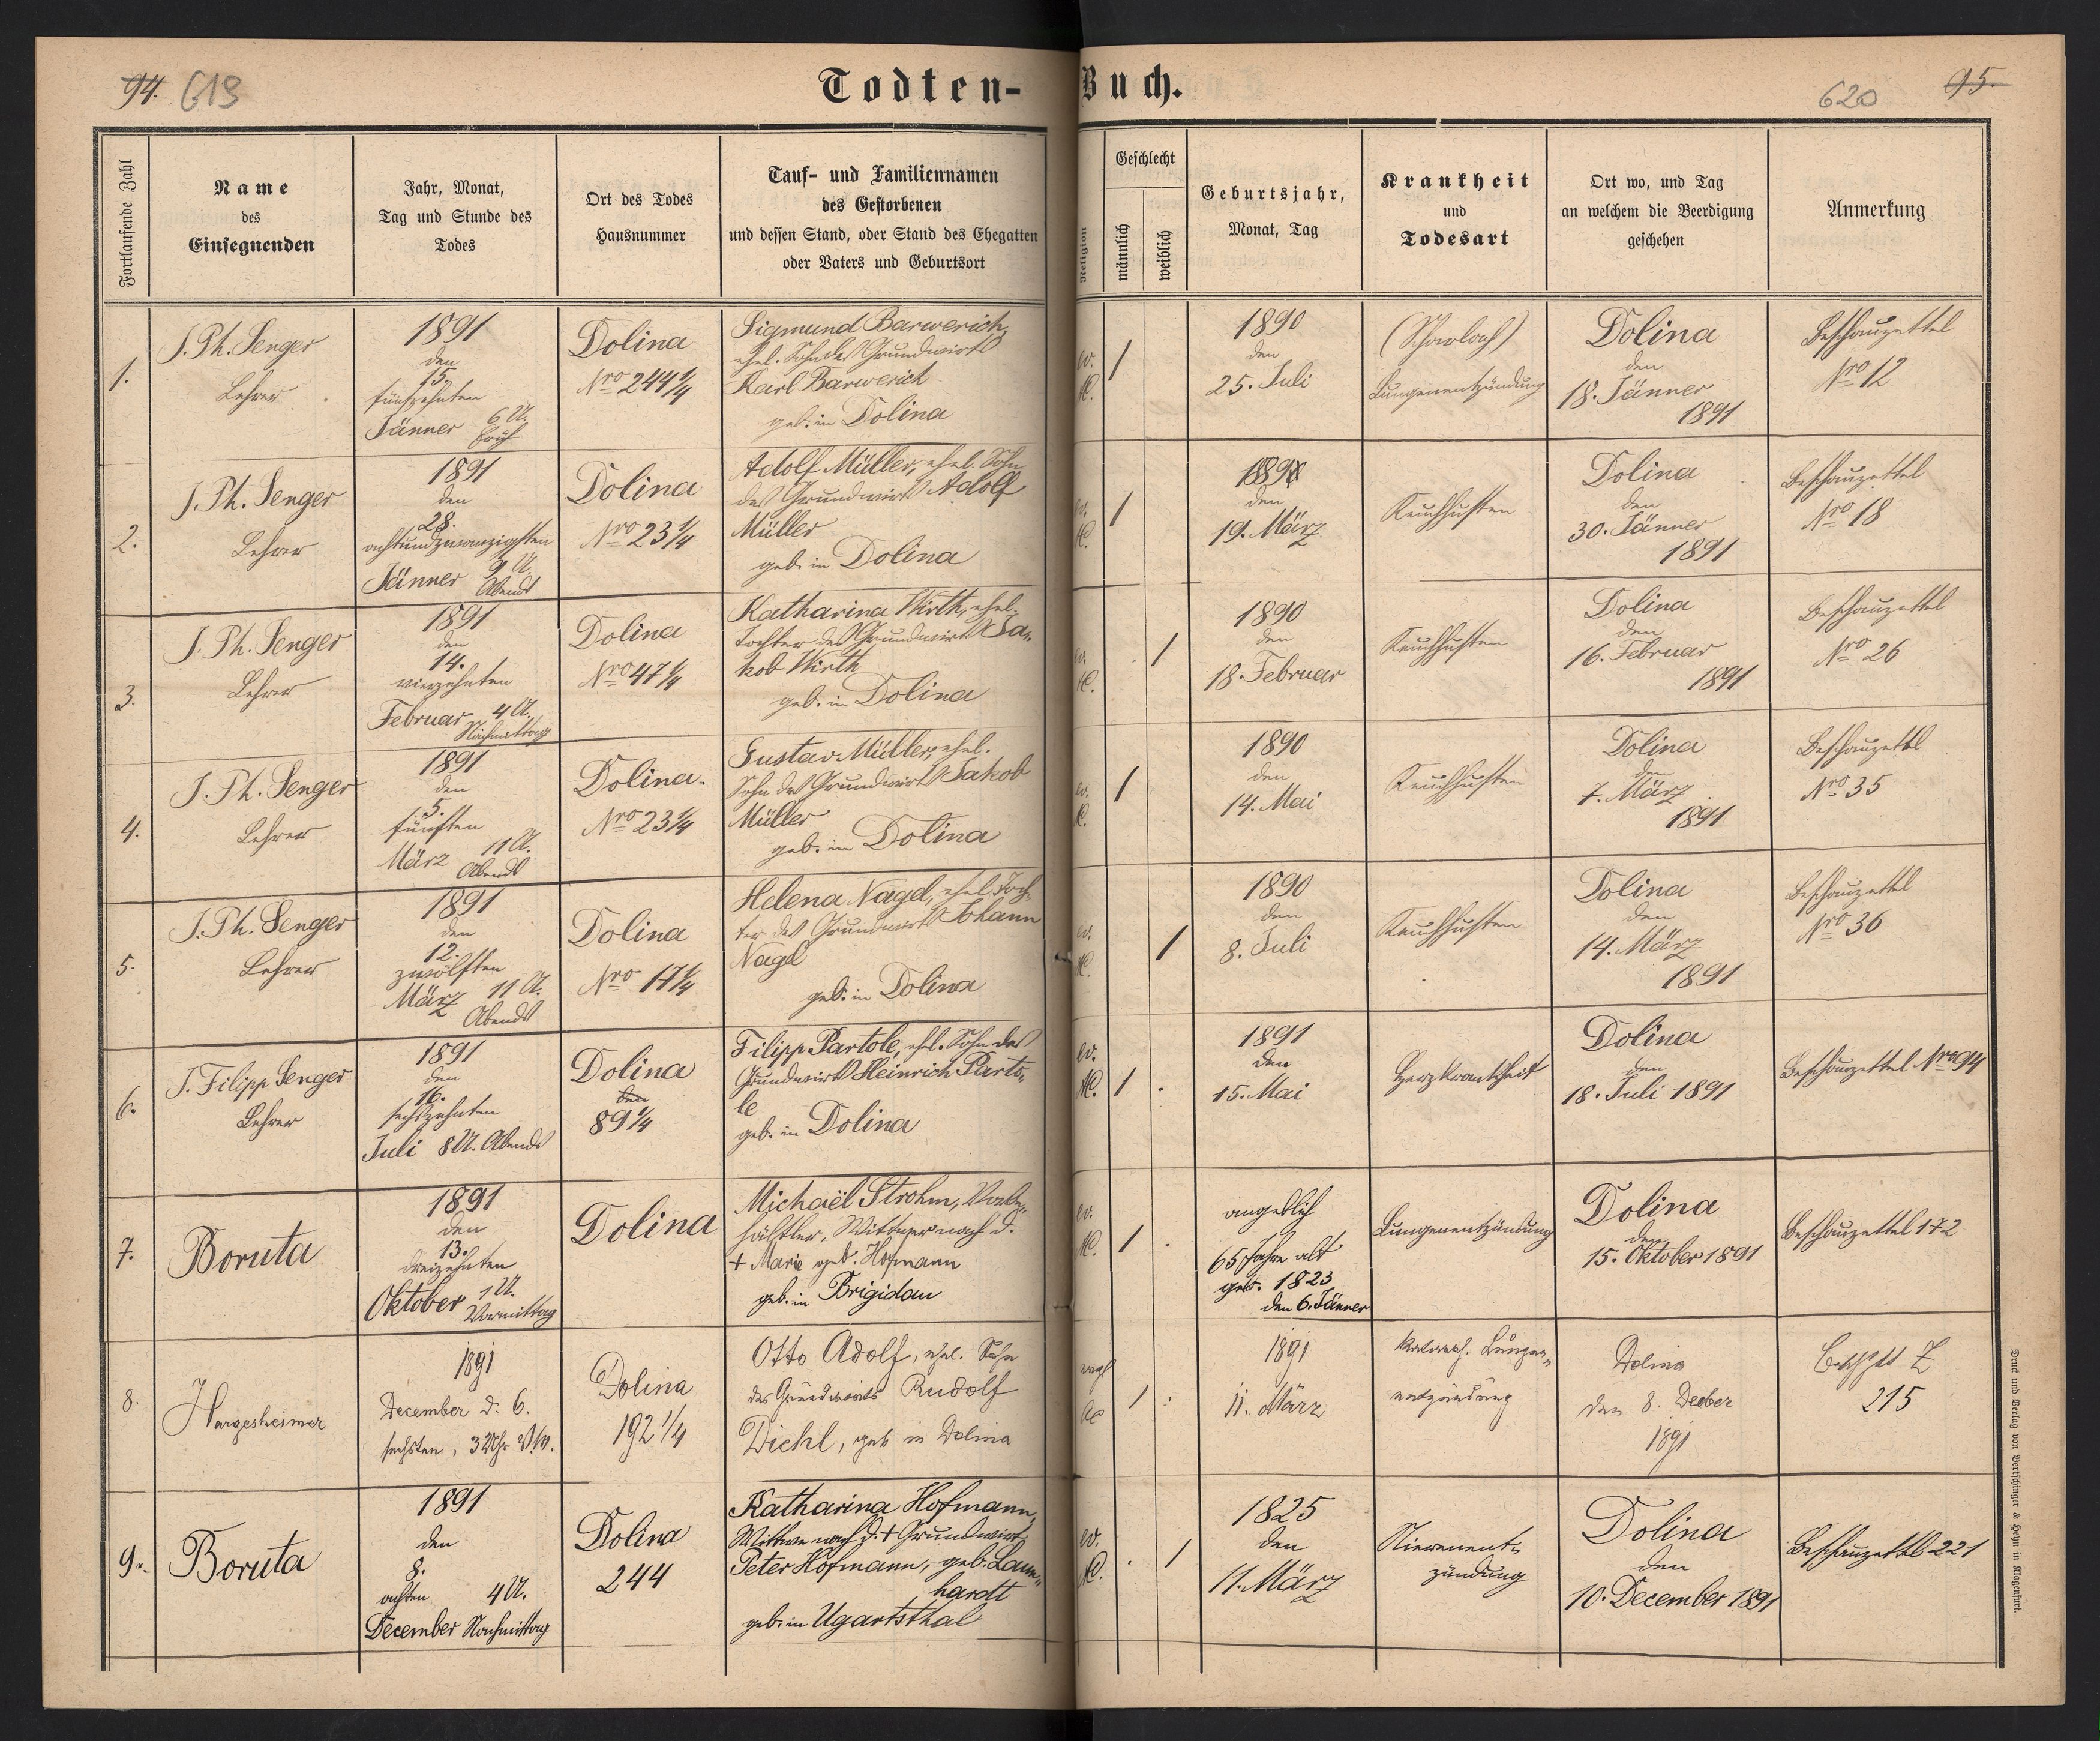 94. 619
Todten-Buch.
620 95.
Fortlaufende Zahl
Name
des
Einsegnenden
Jahr, Monat,
Tag und Stunde des
Todes
Ort des Todes
Hausnummer
Tauf- und Familiennamen
des Gestorbenen
und dessen Stand, oder Stand des Ehegatten
oder Vaters und Geburtsort
Religion
Geschlecht
männlich
weiblich
Geburtsjahr,
Monat, Tag
Krankheit
und
Todesart
Ort wo, und Tag
an welchem die Beerdigung
geschehen
Anmerkung
1.
J. Ph. Senger
Lehrer
1891
den
15.
fünfzehnten
Jänner 6 U.
Früh
Dolina
Nro 244 1/4
Sigmund Barwerich,
ehel. Sohn des Grundwirts
Karl Barwerich
geb. in Dolina
ev.
AC.
/
1890
den
25. Juli
(Scharlach)
Lungenentzündung
Dolina
den
18. Jänner
1891
Beschauzettel
Nro 12
2.
J. Ph. Senger
Lehrer
1891
den
28.
achtundzwanzigsten
Jänner 9 U.
Abends
Dolina
Nro 23 1/4
Adolf Müller, ehel. Sohn
des Grundwirts Adolf
Müller
geb. in Dolina
ev.
AC.
/
den
19. März
Keuchhusten
Dolina
den
30. Jänner
1891
Beschauzettel
Nro 18
3.
J. Ph. Senger
Lehrer
1891
den
14.
vierzehnten
Februar 4 U.
Nachmittag
Dolina
Nro 47 1/4
Katharina Wirth, ehel.
Tochter des Grundwirts Ja-
kob Wirth
geb. in Dolina
ev.
AC.
/
1890
den
18. Februar
Keuchhusten
Dolina
den
16. Februar
1891
Beschauzettel
Nro 26
4.
J. Ph. Senger
Lehrer
1891
den
5.
fünften
März 11 U.
Abends
Dolina.
Nro 23 1/4
Gustav Müller, ehel.
Sohn des Grundwirts Jakob
Müller
geb. in Dolina
ev.
AC.
/
1890
den
14. Mai
Keuchhusten
Dolina
den
7. März
1891
Beschauzettel
Nro 35
5.
J. Ph. Senger
Lehrer
1891
den
12.
zwölften
März 11 U.
Abends
Dolina
Nro 17 1/4
Helena Nagel, ehel. Toch-
ter des Grundwirts Johann
Nagel
geb. in Dolina
ev.
AC.
/
1890
den
8. Juli
Keuchhusten
Dolina
den
14. März
1891
Beschauzettel
Nro 36
6.
J. Filipp Senger
Lehrer
1891
den
16.
sechszehnten
Juli 8 U. Abends
Dolina
den
89 1/4
Filipp Partole, ehl. Sohn des
Grundwirts Heinrich Parto-
le
geb. in Dolina
ev.
AC.
/
1891
den
15. Mai
Herzkrankheit
Dolina
den
18. Juli 1891
Beschauzettel Nro 94
7.
Boruta
1891
den
13.
dreizehnten
Oktober 1 U.
Vormittag
Dolina
Michaël Strohm,
Wittwer nach d.
+ Marie geb. Hofmann
geb. in Brigidau
ev.
AC.
/
angeblich
65 Jahre alt
geb. 1823
den 6. Jänner
Lungenentzündung
Dolina
den
15. Oktober 1891
Beschauzettel 172
8.
Hargesheimer
1891
December d. 6.
sechsten, 3 Uhr V.M.
Dolina
192 1/4
Otto Adolf, ehel. Sohn
des Grundwirts Rudolf
Diehl, geb in Dolina
evgl
AC
/
1891
11. März
Katarrh. Lungen-
entzündung
Dolina
den 8. Decber
1891
Beschztt Z
215
9.
Boruta
1891
den
8.
achten 4 U.
December Nachmittag
Dolina
244
Katharina Hofmann,
Wittwe nach d. + Grundwirt
Peter Hofmann, geb. Laun-
hardt
geb. in Ugartsthal
ev.
AC.
/
1825
den
11. März
Nierenent-
zündung
Dolina
den
10. December 1891
Beschauzettel 221
Druck und Verlag von Bertschinger & Heyn in Klagenfurt.